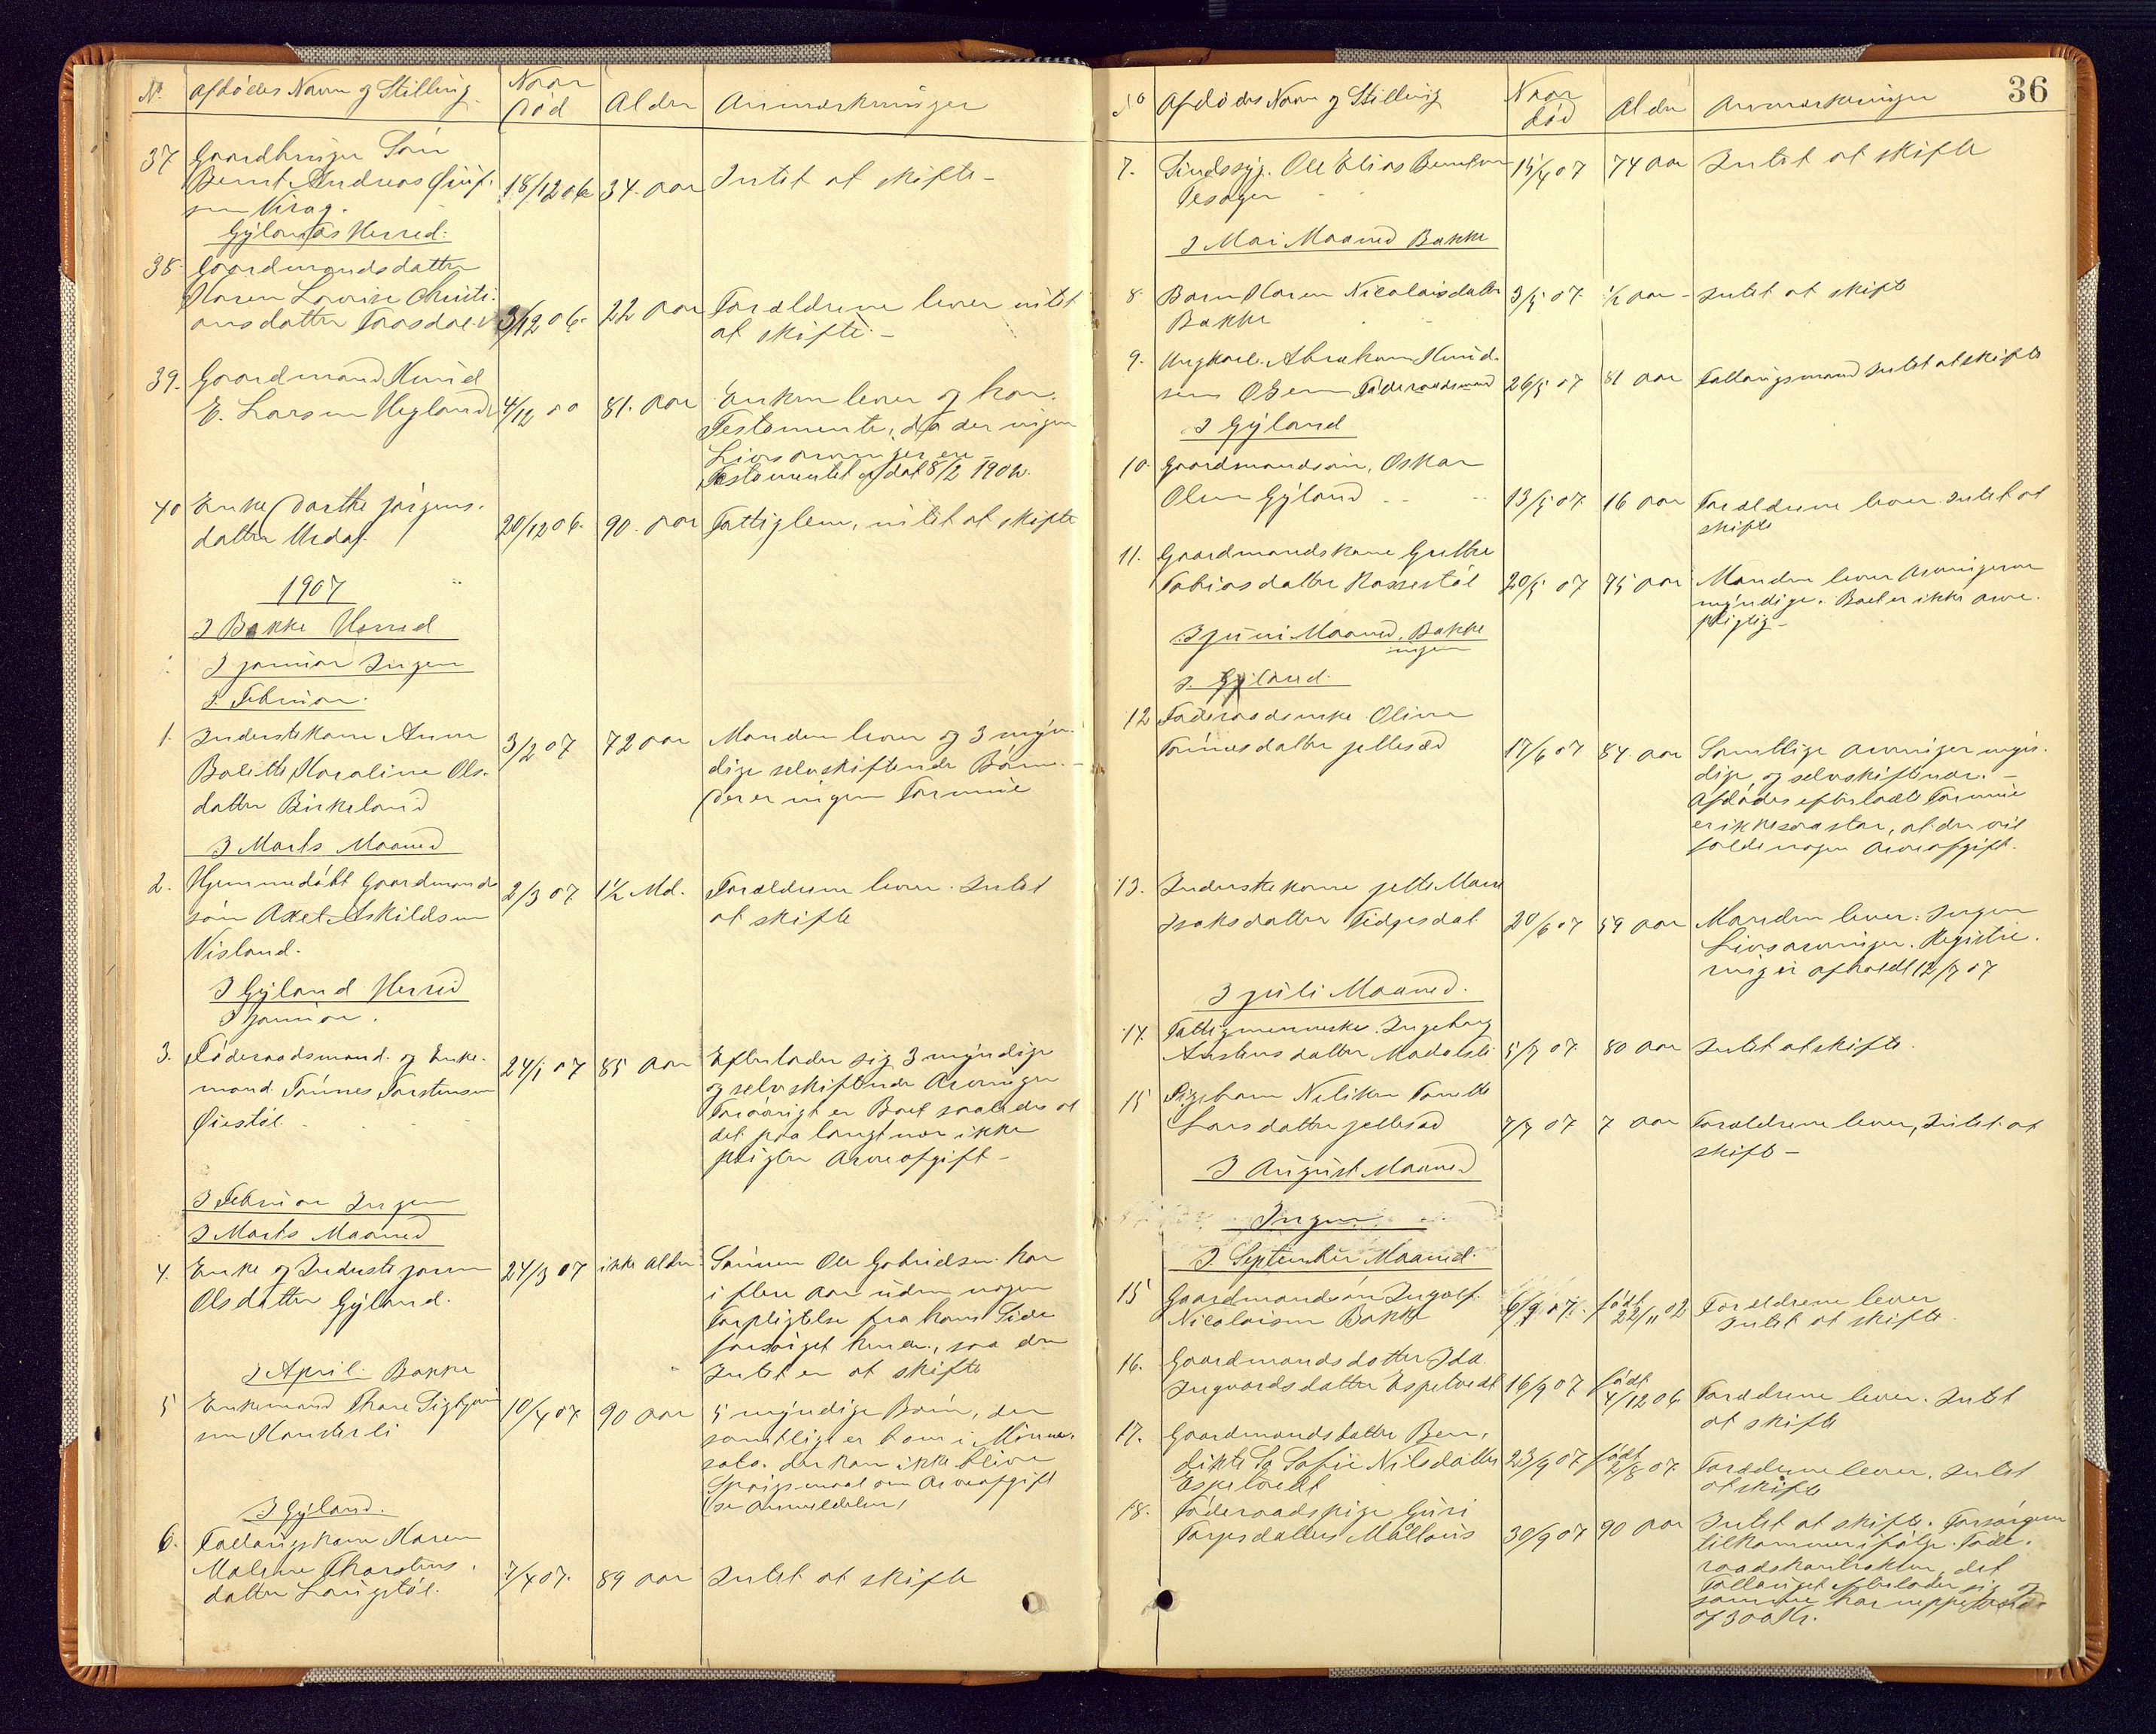 No. Afdødes Navn og Stilling Naar død Alder Anmærkninger
37 Gaardbruger Søn
Bernt Andreas
sen Virag. 18/12 06 34. aar Intet at skifte –
Gylands Herred.
38. Gaardmandsdatter
Karen Lovise Christi-
ansdatter 3/12 06. 22 aar Forældrene lever intet
at skifte –
39. Gaardmand Knud
E. Larsen Hegland 4/12 06 81. aar Enken lever og har
Testamente, da der ingen
Livsarvinger er –
Testamentet af dat 8/2 190
40 Enke Dorthe Jørgens-
datter Urdal 20/12 06. 90. aar Fattiglem, intet at skifte
1907
I Bakke Herred
I januar Ingen
I. Februar.
1. Inderstekone Anne
Bolette Karoline Ols-
datter Birkeland 3/2 07 72 aar Manden lever og 3 myn-
dige selvskiftende Børn. –
Der er ingen Formue
I Marts Maaned
2. Hjemmedøbt Gaardmands
søn Axel Askildsen
Nisland. 2/3 07 1½ Md. Forældrene lever. Intet
at skifte
I Gyland Herred
I januar.
3. Føderaadsmand og Enke-
mand Tønnes Torstensen
Øiestøl. 24/1 07 85 aar Efterlader sig 3 myndige
og selvskiftende Arvinger
Forøvrigt er Boet saaledes at
det paa langt nær ikke
pligter Arveafgift –
I Februar Ingen
I Marts Maaned
4. Enke og Inderste
Olsdatter Gyland. 24/3 07 ikke Alder. Sønnen Ole Gabrielsen har
i flere Aar uden nogen
Forpligtelse fra hans Side
forsørget hende, saa der
Intet er at skifte
I April. Bakke
5 Enkemand Thore Sigbjørn
sen Hansterli 10/4 07 90 aar 5 myndige Børn, der
samtlige er bom i Minne-
sota. Der kan ikke blive
Spørgsmaal om Arveafgift
(se Anmeldelsen)
I Gyland.
6. Follaugskone Karen
Malene Thorstens-
datter Langstøl. 7/4 07. 89 aar Intet at skifte
36
No Afdødes Navn og Stilling Naar død Alder Anmærkninger
7. Sindssyg. Ole Elias Berntsen
Tesager 15/4 07 74 aar Intet at skifte
I Mai Maaned Bakke
8. Barn Karen Nicolaisdatter
Bakke 3/5 07. ½ aar – Intet at skifte
9. Ungkarl. Abraham Knud-
sen Osen Føderaadsmand 26/5 07 81 aar Follaugsmand Intet at skifte
I Gyland
10. Gaardmandssøn, Oskar
Olsen Gyland 13/5 07 16 aar Forældrene lever Intet at
skifte
11. Gaardmandskone Grethe
Tobiasdatter Rossestøl 20/5 07 75 aar Manden lever Arvingerne
myndige. Boet er ikke arve-
pligtig –
I juni Maaned, Bakke
ingen
I. Gyland.
12 Føderaadsenke Oline
Tønnesdatter jellesad 17/6 07 84. aar Samtlige Arvinger myn-
dige og selvskiftende. –
Afdødes efterladte Formue
er ikke saa stor, at der vil
falde nogen Arveafgift.
13. Inderstekone jette Marie
Isaksdatter Fidgesdal 20/6 07 59 aar Manden lever. Ingen
Livsarvinger. Registre-
ring er afholdt 12/7 07
I juli Maaned.
14. Fattigmenneske Ingeborg
Austensdatter 5/7 07. 80 aar Intet at skifte.
15 Pigebarn Nelikke Tonette
Larsdatter jellesad 7/7 07 7 aar Forældrene lever, Intet at
skifte –
I August Maaned
Ingen
I. September Maaned.
15 Gaardmandssøn Ingolf
Nicolaisen Bakke 6/9 07. født 22/11 02 Forældrene lever
Intet at skifte.
16. Gaardmandsdatter Ida
Ingvardsdatter Espetvedt 16/9 07 født 4/12 06 Forældrene lever. Intet
at skifte
17. Gaardmandsdatter Ben-
dikte Sofie Nilsdatter
Espetvedt 23/9 07 født 2/8 07. Forældrene lever, Intet
at skifte
18. Føderaadspige Guri
Torgesdatter 30/9 07 90 aar Intet at skifte. Forsørgeren
tilkommer ifølge Føde-
raadskontrakten, det
Follauget efterlader sig og
samme har neppe Værdi
af 300 Kr.